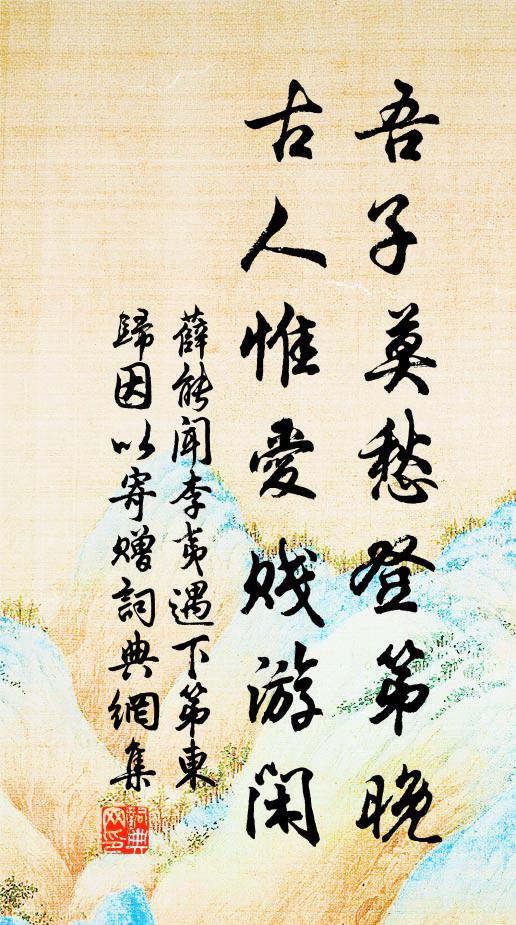 吾子莫愁登第晚
古人惟愛賤游閑
薛能聞李夷遇下第東
歸因以寄贈詞典網集
詞典
网